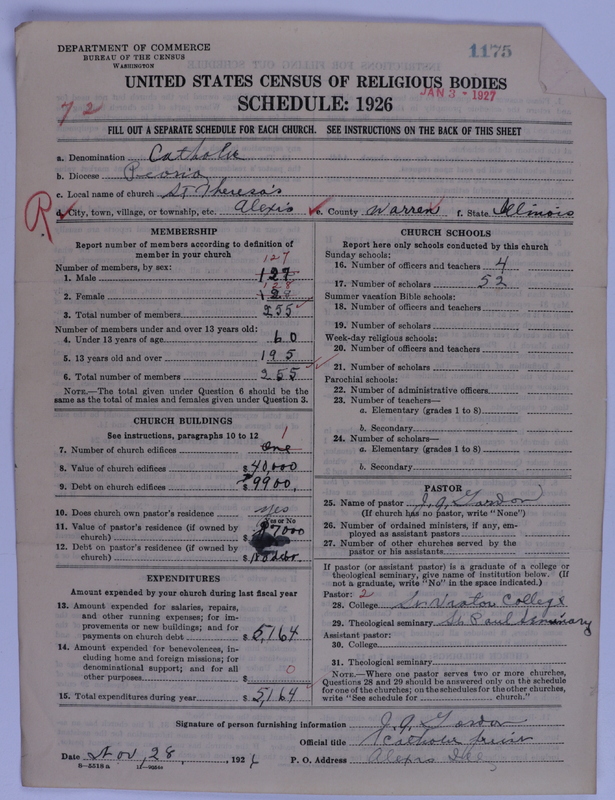 DEPARTMENT OF COMMERCE
BUREAU OF THE CENSUS
WASHINGTON
1175
UNITED STATES CENSUS OF RELIGIOUS BODIES
JAN 3 - 1927
72
SCHEDULE: 1926
FILL OUT A SEPARATE SCHEDULE FOR EACH CHURCH. SEE INSTRUCTIONS ON THE BACK OF THIS SHEET
a. Denomination Catholic
b. Diocese Peoria
c. Local name of church St Theresa's
R
d. City, town, village, or township, etc. Alexis e. County Warren f. State Illinois
MEMBERSHIP
Report number of members according to definition of
member in your church
Number of members, by sex:
127
1. Male 127
128
2. Female
3. Total number of members 255
Number of members under and over 13 years old:
4. Under 13 years of age 60
5. 13 years old and over 195
6. Total number of members 255
NOTE.—The total given under Question 6 should be
same as the total of males and females given under Question 3.
CHURCH BUILDINGS
See instructions, paragraphs 10 to 12
1
7. Number of church edifices one
8. Value of church edifices $40,000
9. Debt on church edifices $9900.
10. Does church own pastor's residence? yes
Yes or No
11. Value of pastor's residence (if owned by
church) $7000
12. Debt on pastor's residence (if owned by
church) $ No debt.
EXPENDITURES
Amount expended by your church during last fiscal year
13. Amount expended for salaries, repairs,
and other running expenses; for im-
provements or new buildings; and for
payments on church debt $5,164
14. Amount expended for benevolences, in-
cluding home and foreign missions; for
denominational support; and for all
other purposes $ 0
15. Total expenditures during year $5,164
CHURCH SCHOOLS
Report here only schools conducted by this church
Sunday schools:
16. Number of officers and teachers 4
17. Number of scholars 52
Summer vacation Bible schools:
18. Number of officers and teachers
19. Number of scholars
Week-day religious schools:
20. Number of officers and teachers
21. Number of scholars
Parochial schools:
22. Number of administrative officers
23. Number of teachers—
a. Elementary (grades 1 to 8)
b. Secondary
24. Number of scholars—
a. Elementary (grades 1 to 8)
b. Secondary
PASTOR
25. Name of pastor
(If church has no pastor, write "None")
26. Number of ordained ministers, if any, em-
ployed as assistant pastors
27. Number of other churches served by the
pastor or his assistants
If pastor (or assistant pastor) is a graduate of a college or
theological seminary, give name of institution below. (If
not a graduate, write "No" in the space indicated.)
Pastor: 2
28. College St. Viator College
29. Theological seminary St. Paul Seminary
Assistant pastor:
30. College
31. Theological seminary
NOTE.—Where one pastor serves two or more churches,
Questions 28 and 29 should be answered only on the schedule
for one of the churches; on the schedules for the other churches,
write "See schedule for church."
Signature of person furnishing information
Official title Catholic priest
Date Nov, 28, 192 P. O. Address Alexis Ill
8—5518 a